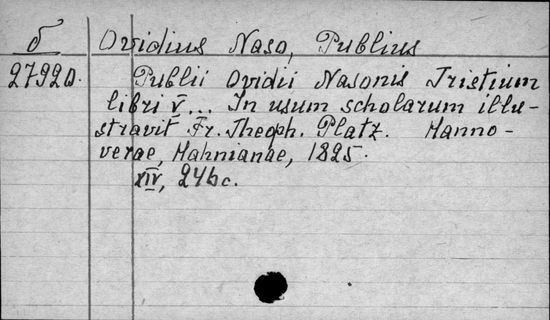 б Ovidius Naso, Publius
27920. Publii Ovidii Nasonis Tristium
libri V... In usum scholarum illu-
stravit Fr. Theoph. Platz. Hanno-
verae, Hahnianae, 1825.
XIV, 246c.